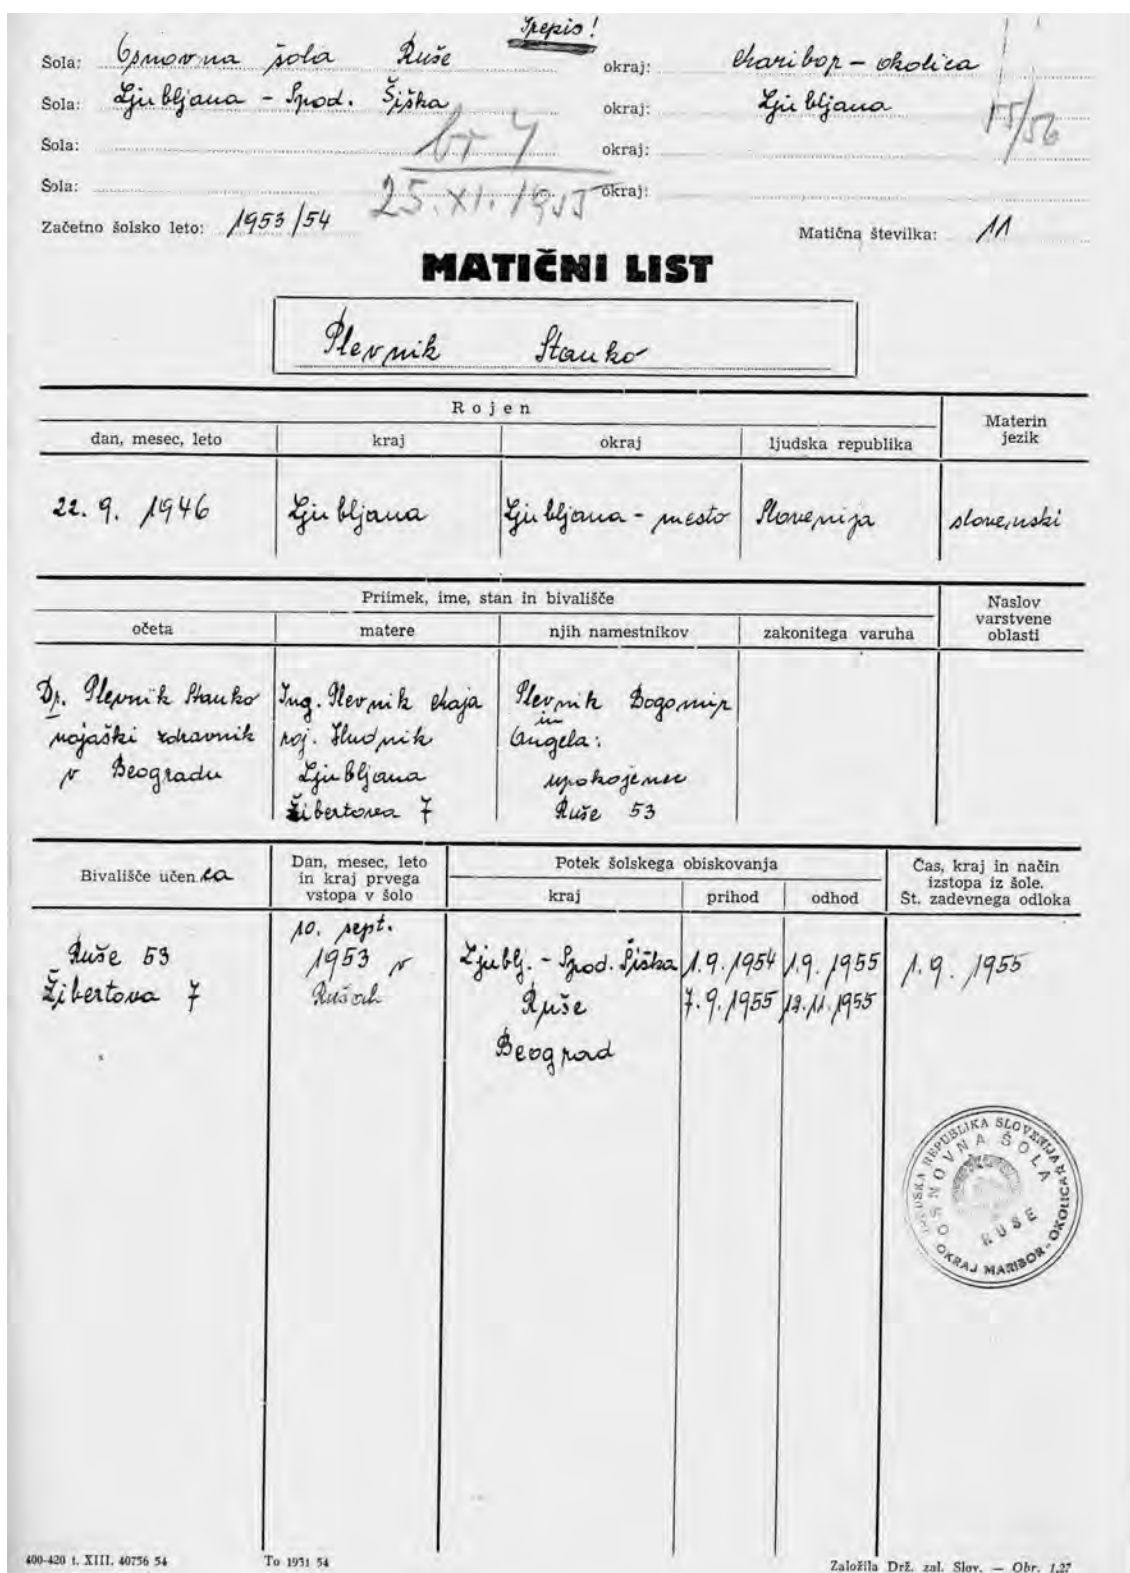 Prepis!
Šola: Osnovna šola Ruše okraj: Maribor - okolica
Šola: Ljubljana - Spod. Šiška okraj: Ljubljana
55/56
Šola: okraj:
Šola: okraj:
25. XI. 1955
Začetno šolsko leto: 1953/54 Matična številka: 11
MATIČNI LIST
Plevnik Stanko
Rojen
Materin
jezik
dan, mesec, leto kraj okraj ljudska republika
22. 9. 1946 Ljubljana Ljubljana - mesto Slovenija slovenski
Priimek, ime, stan in bivališče
Naslov
varstvene
oblasti
očeta matere njih namestnikov zakonitega varuha
Dr. Plevnik Stanko
vojaški zdravnik
v Beogradu
Ing. Plevnik Maja
roj. Hudnik
Ljubljana
Žibertova 7
Plevnik Bogomir
in
Angela:
upokojenec
Ruše 53
Bivališče učenca
Dan, mesec, leto
in kraj prvega
vstopa v šolo
Potek šolskega obiskovanja
kraj prihod odhod
Čas, kraj in način
izstopa iz šole.
Št. zadevnega odloka
Ruše 53
Žibertova 7
10. sept.
1953 v
Rušah
Ljublj. - Spod. Šiška 1.9.1954 1.9.1955
Ruše 7.9.1955
Beograd
1.9.1955
LJUDSKA REPUBLIKA SLOVENIJA
OSNOVNA ŠOLA
RUŠE
OKRAJ MARIBOR-OKOLICA
400-420 t. XIII. 40756 54 To 1931 54 Založila Drž. zal. Slov. — Obr. 1,27